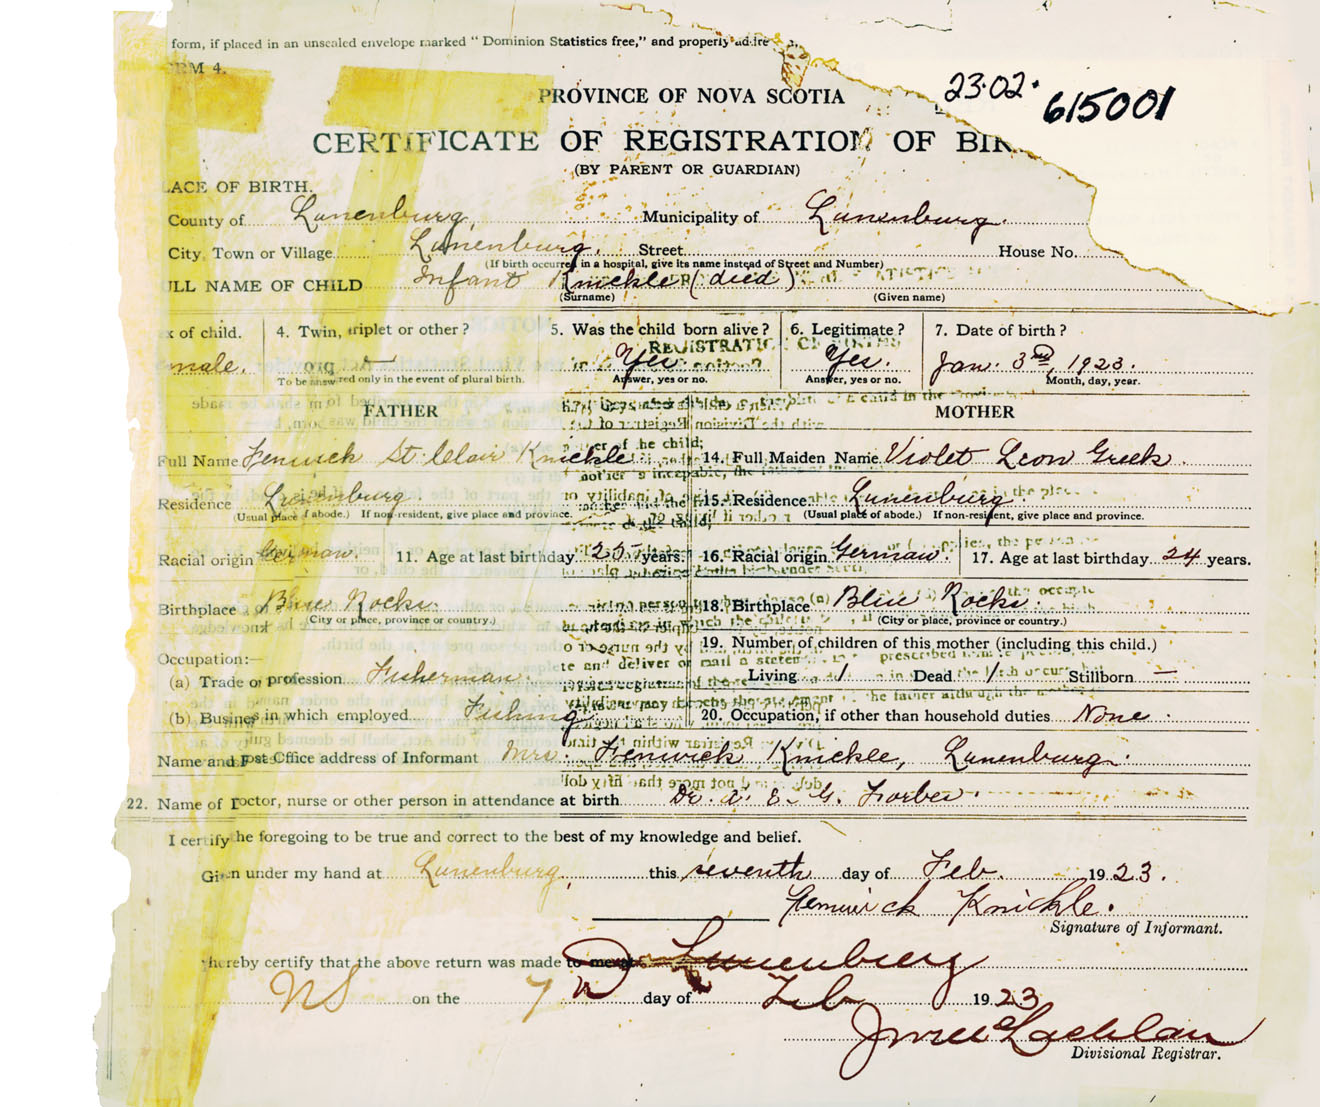 form, if placed in an unsealed envelope marked "Dominion Statistics free," and properly addre
RM 4.
23·02· 615001
PROVINCE OF NOVA SCOTIA
CERTIFICATE OF REGISTRATION OF BIR
(BY PARENT OR GUARDIAN)
LACE OF BIRTH.
County of Lunenburg Municipality of Lunenburg.
City, Town or Village Lunenburg. Street House No.
(If birth occurred in a hospital, give its name instead of Street and Number)
ULL NAME OF CHILD Infant Knickle (died)
(Surname) (Given name)
x of child. 4. Twin, triplet or other? 5. Was the child born alive? 6. Legitimate? 7. Date of birth?
male. — Yes Yes. Jan. 3rd, 1923.
To be answered only in the event of plural birth. Answer, yes or no. Answer, yes or no. Month, day, year.
FATHER MOTHER
Full Name Fenwick St. Clair Knickle 14. Full Maiden Name Violet Leon Greek.
Residence Lunenburg 15. Residence Lunenburg
(Usual place of abode.) If non-resident, give place and province. (Usual place of abode.) If non-resident, give place and province.
Racial origin German. 11. Age at last birthday 25 years. 16. Racial origin German. 17. Age at last birthday 24 years.
Birthplace Blue Rocks. 18. Birthplace Blue Rocks.
(City or place, province or country.) (City or place, province or country.)
19. Number of children of this mother (including this child.)
Occupation:—
(a) Trade or profession Fisherman. Living 1 Dead 1 Stillborn —
(b) Business in which employed Fishing 20. Occupation, if other than household duties None.
Name and Post Office address of Informant Mrs. Fenwick Knickle, Lunenburg.
22. Name of Doctor, nurse or other person in attendance at birth Dr. A. E. G. Forbes.
I certify the foregoing to be true and correct to the best of my knowledge and belief.
Given under my hand at Lunenburg, this seventh day of Feb. 1923.
Fenwick Knickle.
Signature of Informant.
hereby certify that the above return was made to me at Lunenburg
NS on the 7 day of Feb 1923
McLachlan
Divisional Registrar.